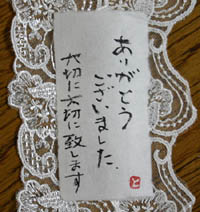 ありがとう
ございました.
大切に大切に致します
と